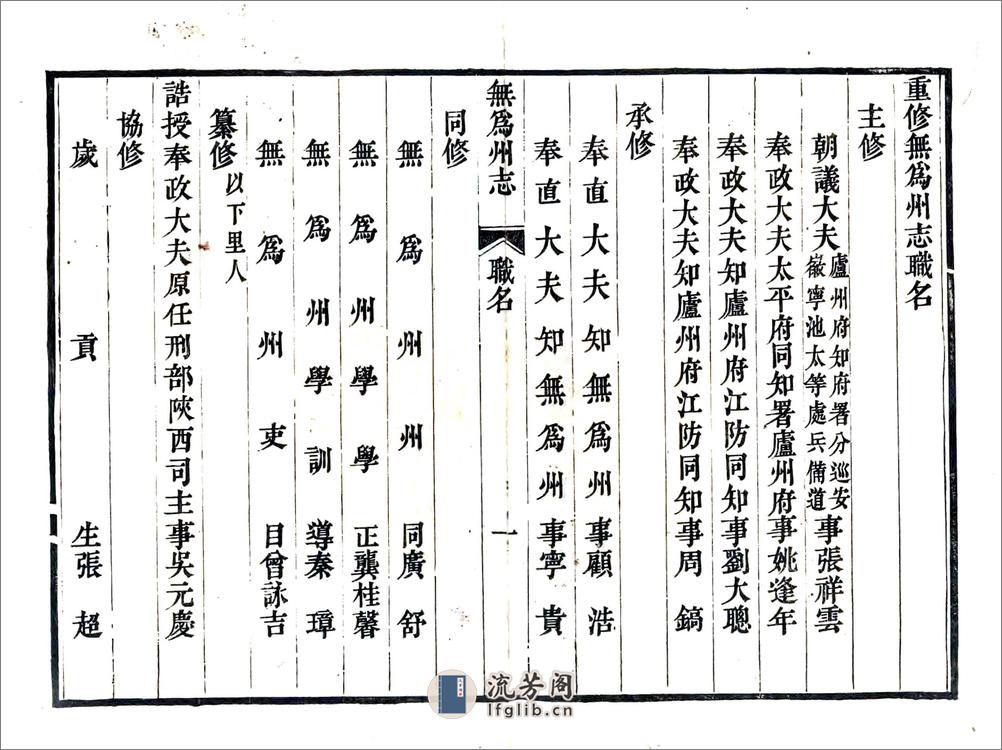 重修無爲州志職名
主修
朝議大夫廬州府知府署分巡安徽寧池太等處兵備道事張祥雲
奉政大夫太平府同知署廬州府事姚逢年
奉政大夫知廬州府江防同知事劉大聰
奉政大夫知廬州府江防同知事周鎬
承修
奉直大夫知無爲州事顧浩
奉直大夫知無爲州事寧貴
無爲州志 職名 一
同修
無爲州州同廣舒
無爲州學學正龔桂馨
無爲州學訓導秦璋
無爲州吏目曾詠吉
纂修以下里人
誥授奉政大夫原任刑部陝西司主事吳元慶
協修
歲貢生張超
流芳阁
lfglib.cn